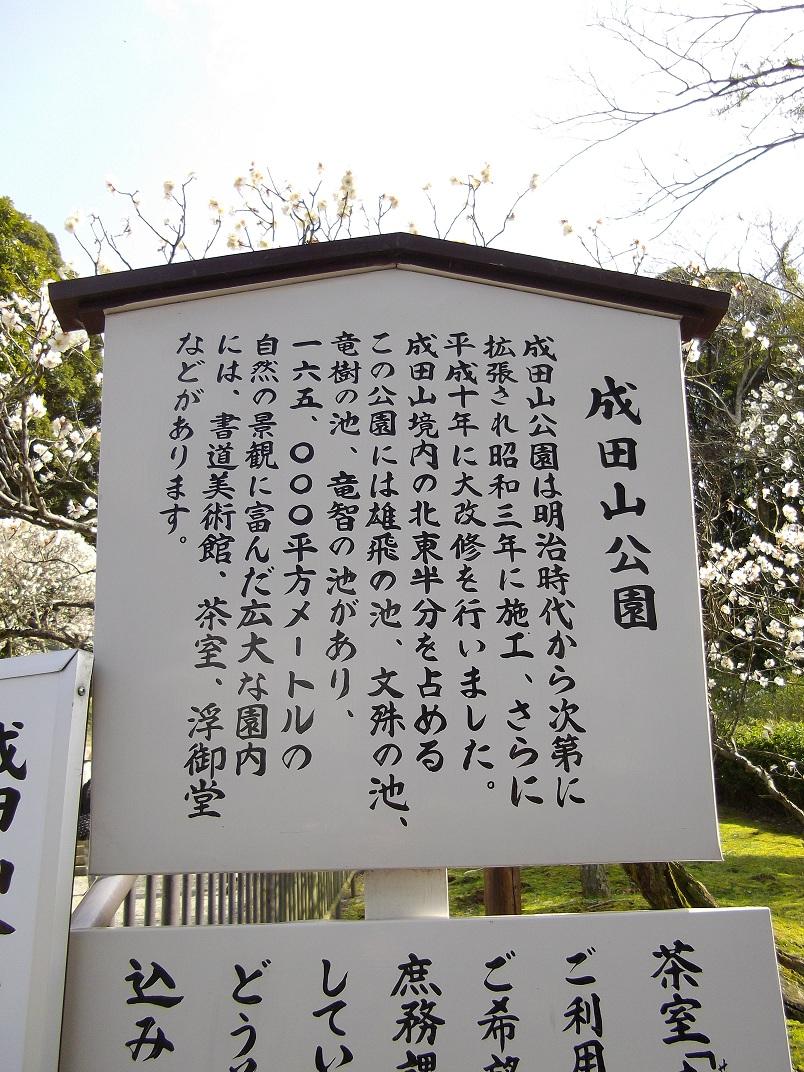 成田山公園
成田山公園は明治時代から次第に
拡張され昭和三年に施工、さらに
平成十年に大改修を行いました。
成田山境内の北東半分を占める
この公園には雄飛の池、文殊の池、
竜樹の池、竜智の池があり、
一六五、〇〇〇平方メートルの
自然の景観に富んだ広大な園内
には、書道美術館、茶室、浮御堂
などがあります。
茶室「
ご利用
ご希望
庶務課
してい
どう
込み
成田山